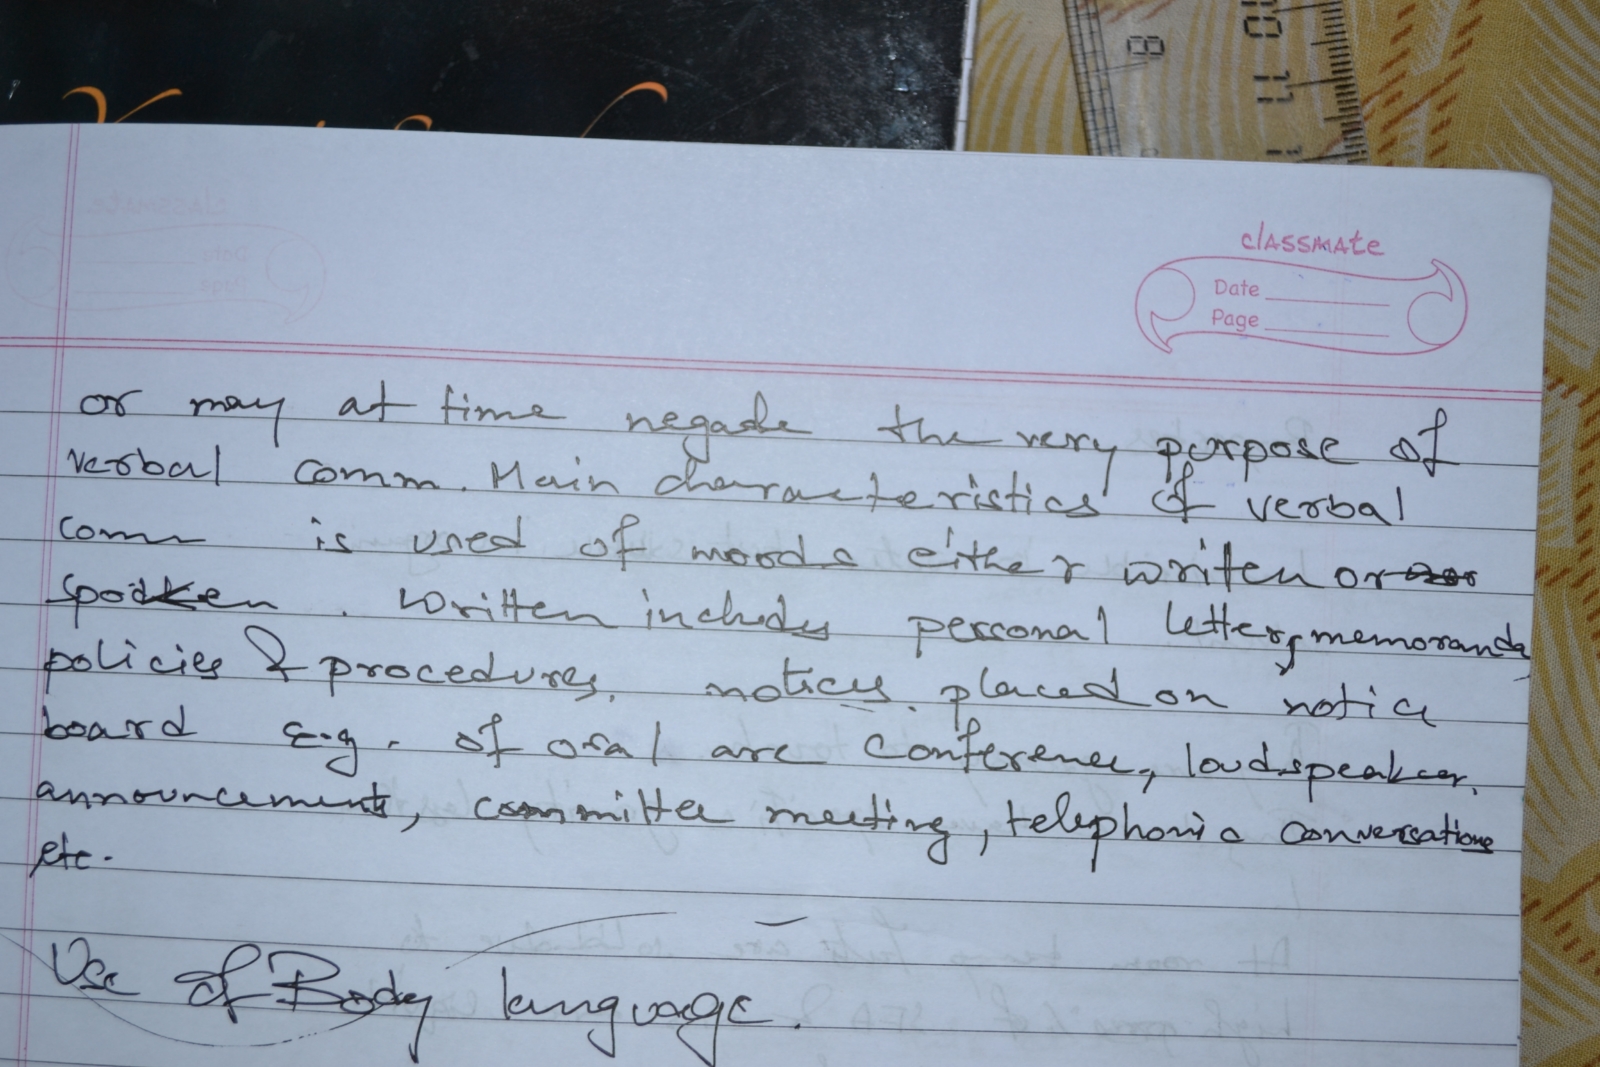 8
10
11
classmate
Date
Page
or may at time negate the very purpose of
verbal comm. Main characteristics of verbal
comm is used of words either writen or
spoken. Written includes personal letters, memoranda
policies & procedures, notices placed on notice
board E.g. of oral are conference, loudspeaker,
announcements, committee meeting, telephonic conversations
etc.
Use of Body language.